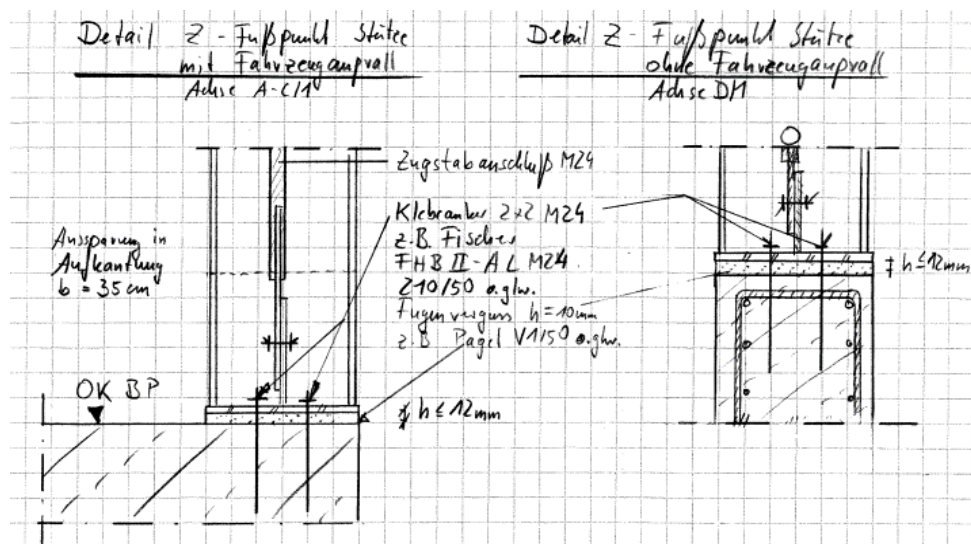 Detail Z - Fußpunkt Stütze
mit Fahrzeuganprall
Achse A-C/1
Detail Z - Fußpunkt Stütze
ohne Fahrzeuganprall
Achse D/1
Zugstabanschluß M24
Klebeanker 2x2 M24
z.B. Fischer
FHB II-AL M24
210/50 o.glw.
Fugenverguss h=10mm
z.B Pagel V1/50 o.glw.
Aussparung in
Aufkantung
b = 35cm
OK BP
h ≤ 12mm
h ≤ 12mm